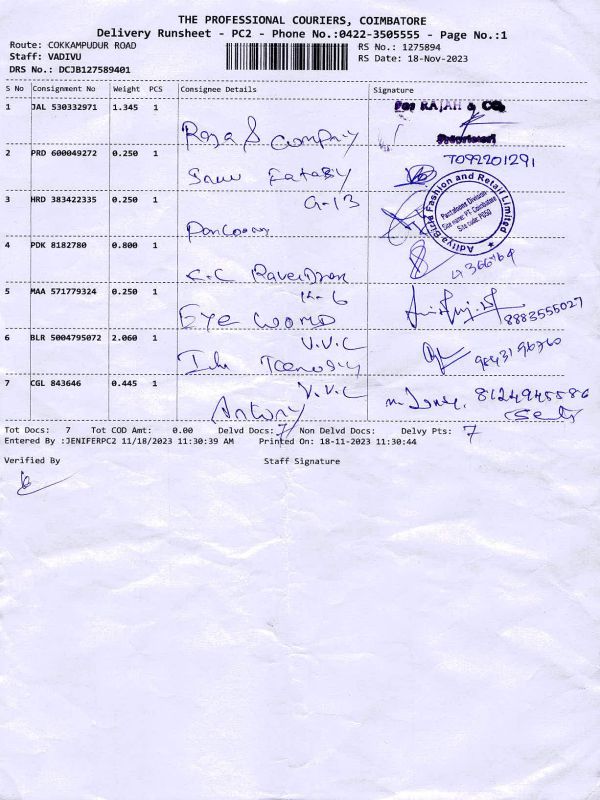 THE PROFESSIONAL COURIERS, COIMBATORE
Delivery Runsheet - PC2 - Phone No.:0422-3505555 - Page No.:1
Route: COKKAMPUDUR ROAD RS No.: 1275894
Staff: VADIVU RS Date: 18-Nov-2023
DRS No.: DCJB127589401
S No Consignment No Weight PCS Consignee Details Signature
1 JAL 530332971 1.345 1
For RAJAH & CO,
Raja & Company Proprietor
2 PRD 600049272 0.250 1 T092201291
3 HRD 383422335 0.250 1 G-13
Aditya Birla Fashion and Retail Limited
Pantaloons Division
Site name: PT-Coimbatore
Site code: P050
4 PDK 8182780 0.800 1
K.C Raveendran
5 MAA 571779324 0.250 1
Eye World 8883555027
6 BLR 5004795072 2.060 1 V.V.C
9843196760
7 CGL 843646 0.445 1 V.V.C 8124945586
Antony
Tot Docs: 7 Tot COD Amt: 0.00 Delvd Docs: 7 Non Delvd Docs: Delvy Pts: 7
Entered By :JENIFERPC2 11/18/2023 11:30:39 AM Printed On: 18-11-2023 11:30:44
Verified By Staff Signature